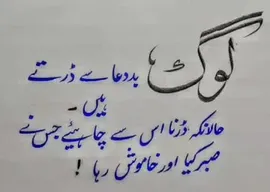 لوگ بددعا سے ڈرتے
ہیں ۔
حالانکہ ڈرنا اس سے چاہئیے جس نے
صبر کیا اور خاموش رہا !